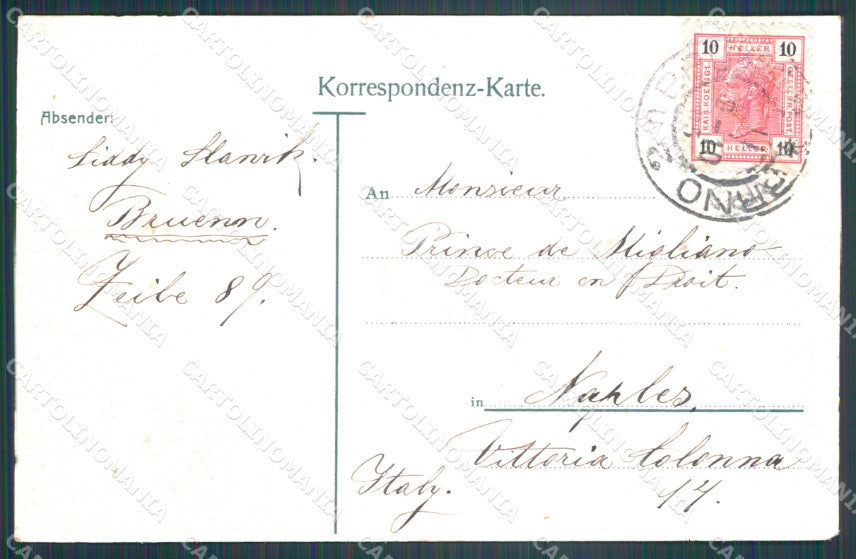 Korrespondenz-Karte.
Absender:
Liddy Slavik.
Bruenn.
Zeile 89.
An Monsieur
Prince de Migliano
Docteur en Droit.
in Naples,
Vittoria Colonna
14.
Italy.
10 HELLER 10
KAIS. KOENIGL.
10 HELLER 10
BRNO
CARTOLINOMANIA